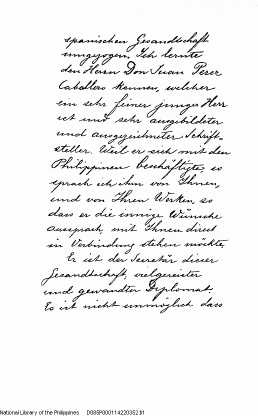 spanischen Gesandtschaft
umgezogen. Ich lernte
den Herrn Don Juan Perez
Caballero kennen, welcher
ein sehr feiner junger Herr
ist und sehr ausgebildeter
und ausgezeichneter Schrift-
steller. Weil er sich mit den
Philippinen beschäftigte, so
sprach ich ihm von Ihnen,
und von Ihren Werken, so
dass er die innige Wünsche
aussprach, mit Ihnen direct
in Verbindung stehen möchte.
Er ist der Secretär dieser
Gesandtschaft, vielgereister
und gewandter Diplomat.
Es ist nicht unmöglich dass
National Library of the Philippines